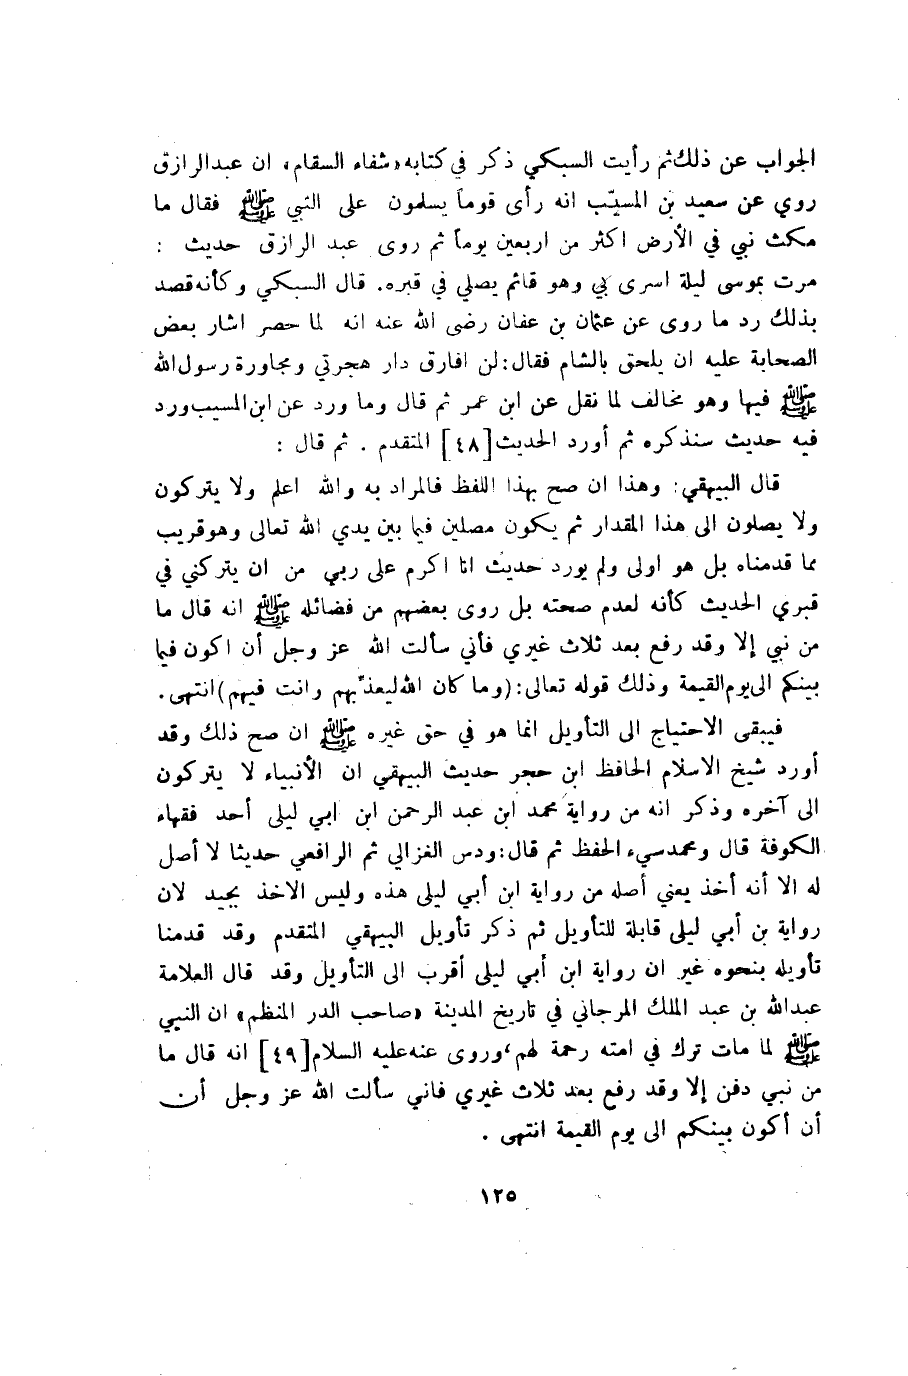 الجواب عن ذلك ثم رأيت السبكي ذكر في كتابه «شفاء السقام» ان عبدالرازق
روي عن سعيد بن المسيّب انه رأى قوماً يسلمون على النبي ﷺ فقال ما
مكث نبي في الأرض اكثر من اربعين يوماً ثم روى عبد الرازق حديث :
مرت بموسى ليلة اسرى بي وهو قائم يصلي في قبره. قال السبكي وكأنه قصد
بذلك رد ما روى عن عثمان بن عفان رضى الله عنه انه لما حصر اشار بعض
الصحابة عليه ان يلحق بالشام فقال: لن افارق دار هجرتي ومجاورة رسول الله
ﷺ فيها وهو مخالف لما نقل عن ابن عمر ثم قال وما ورد عن ابن المسيب ورد
فيه حديث سنذكره ثم أورد الحديث [٤٨] المتقدم . ثم قال :
قال البيهقي: وهذا ان صح بهذا اللفظ فالمراد به والله اعلم ولا يتركون
ولا يصلون الى هذا المقدار ثم يكون مصلين فيما بين يدي الله تعالى وهو قريب
مما قدمناه بل هو اولى ولم يورد حديث انا اكرم على ربي من ان يتركني في
قبري الحديث كأنه لعدم صحته بل روى بعضهم من فضائله ﷺ انه قال ما
من نبي إلا وقد رفع بعد ثلاث غيري فأني سألت الله عز وجل أن اكون فيما
بينكم الى يوم القيمة وذلك قوله تعالى: (وما كان الله ليعذّبهم وانت فيهم) انتهى.
فيبقى الاحتياج الى التأويل انما هو في حق غيره ﷺ ان صح ذلك وقد
أورد شيخ الاسلام الحافظ ابن حجر حديث البيهقي ان الأنبياء لا يتركون
الى آخره وذكر انه من رواية محمد ابن عبد الرحمن ابن ابي ليلى أحد فقهاء
الكوفة قال ومحمد سيء الحفظ ثم قال: ودس الغزالي ثم الرافعي حديثا لا أصل
له الا أنه أخذ يعني أصله من رواية ابن أبي ليلى هذه وليس الاخذ بجيد لان
رواية بن أبي ليلى قابلة للتأويل ثم ذكر تأويل البيهقي المتقدم وقد قدمنا
تأويله بنحوه غير ان رواية ابن أبي ليلى أقرب الى التأويل وقد قال العلامة
عبدالله بن عبد الملك المرجاني في تاريخ المدينة «صاحب الدر المنظم» ان النبي
ﷺ لما مات ترك في امته رحمة لهم، وروى عنه عليه السلام [٤٩] انه قال ما
من نبي دفن إلا وقد رفع بعد ثلاث غيري فاني سألت الله عز وجل أن
أن أكون بينكم الى يوم القيمة انتهى .
١٢٥